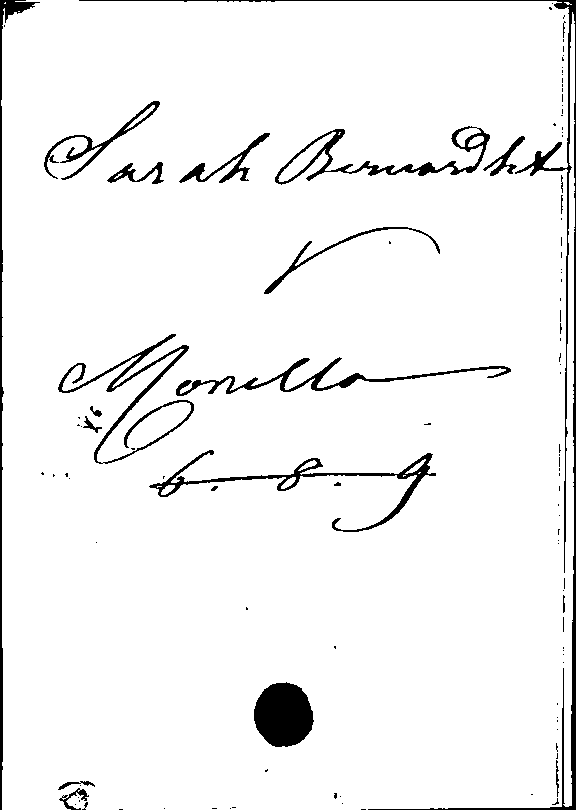 Sarah Bernardht
v
Monella
6. 8. 9